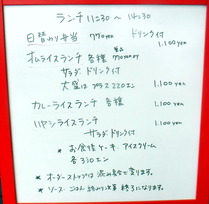 ランチ 11:30 〜 14:30
日替わり弁当 770yen ドリンク付
1.100yen
オムライスランチ 各種 単品 770yen
サラダ ドリンク付
大盛はプラス220エン 1.100yen
カレーライスランチ 各種 1.100yen
ハヤシライスランチ 1.100yen
サラダ ドリンク付
* お食後ケーキ、アイスクリーム
各330エン
* オーダーストップは
* ソース、ごはん 終り次第 終了になります。